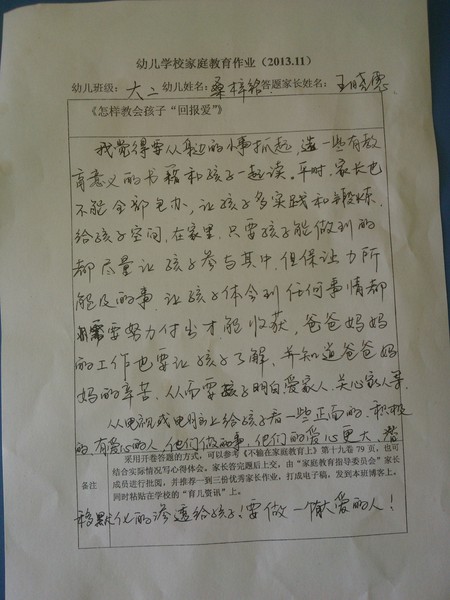 幼儿学校家庭教育作业（2013.11）
幼儿班级： 大二 幼儿姓名：桑梓铭 答题家长姓名：王晓霞
《怎样教会孩子“回报爱”》
我觉得要从身边的小事抓起，选一些有教
育意义的书籍和孩子一起读。平时，家长也
不能全部包办，让孩子多实践和锻炼，
给孩子空间，在家里，只要孩子能做到的
都尽量让孩子参与其中，但保让力所
能及的事，让孩子体会到任何事情都
需要努力付出才能收获，爸爸妈妈
的工作也要让孩子了解，并知道爸爸妈
妈的辛苦，从而要孩子明白爱家人，关心家人等
从电视或电脑上给孩子看一些正面的，积极
的，有爱心的人，他们做的事，他们的爱心更大，潜
备注
采用开卷答题的方式，可以参考《不输在家庭教育上》第十九卷 79 页，也可
结合实际情况写心得体会。家长答完题后上交，由“家庭教育指导委员会”家长
成员进行批阅，并推荐一到三份优秀家长作业，打成电子稿，发到本班博客上。
同时粘贴在学校的“育儿资讯”上。
移默化的渗透给孩子！要做一个有大爱的人！